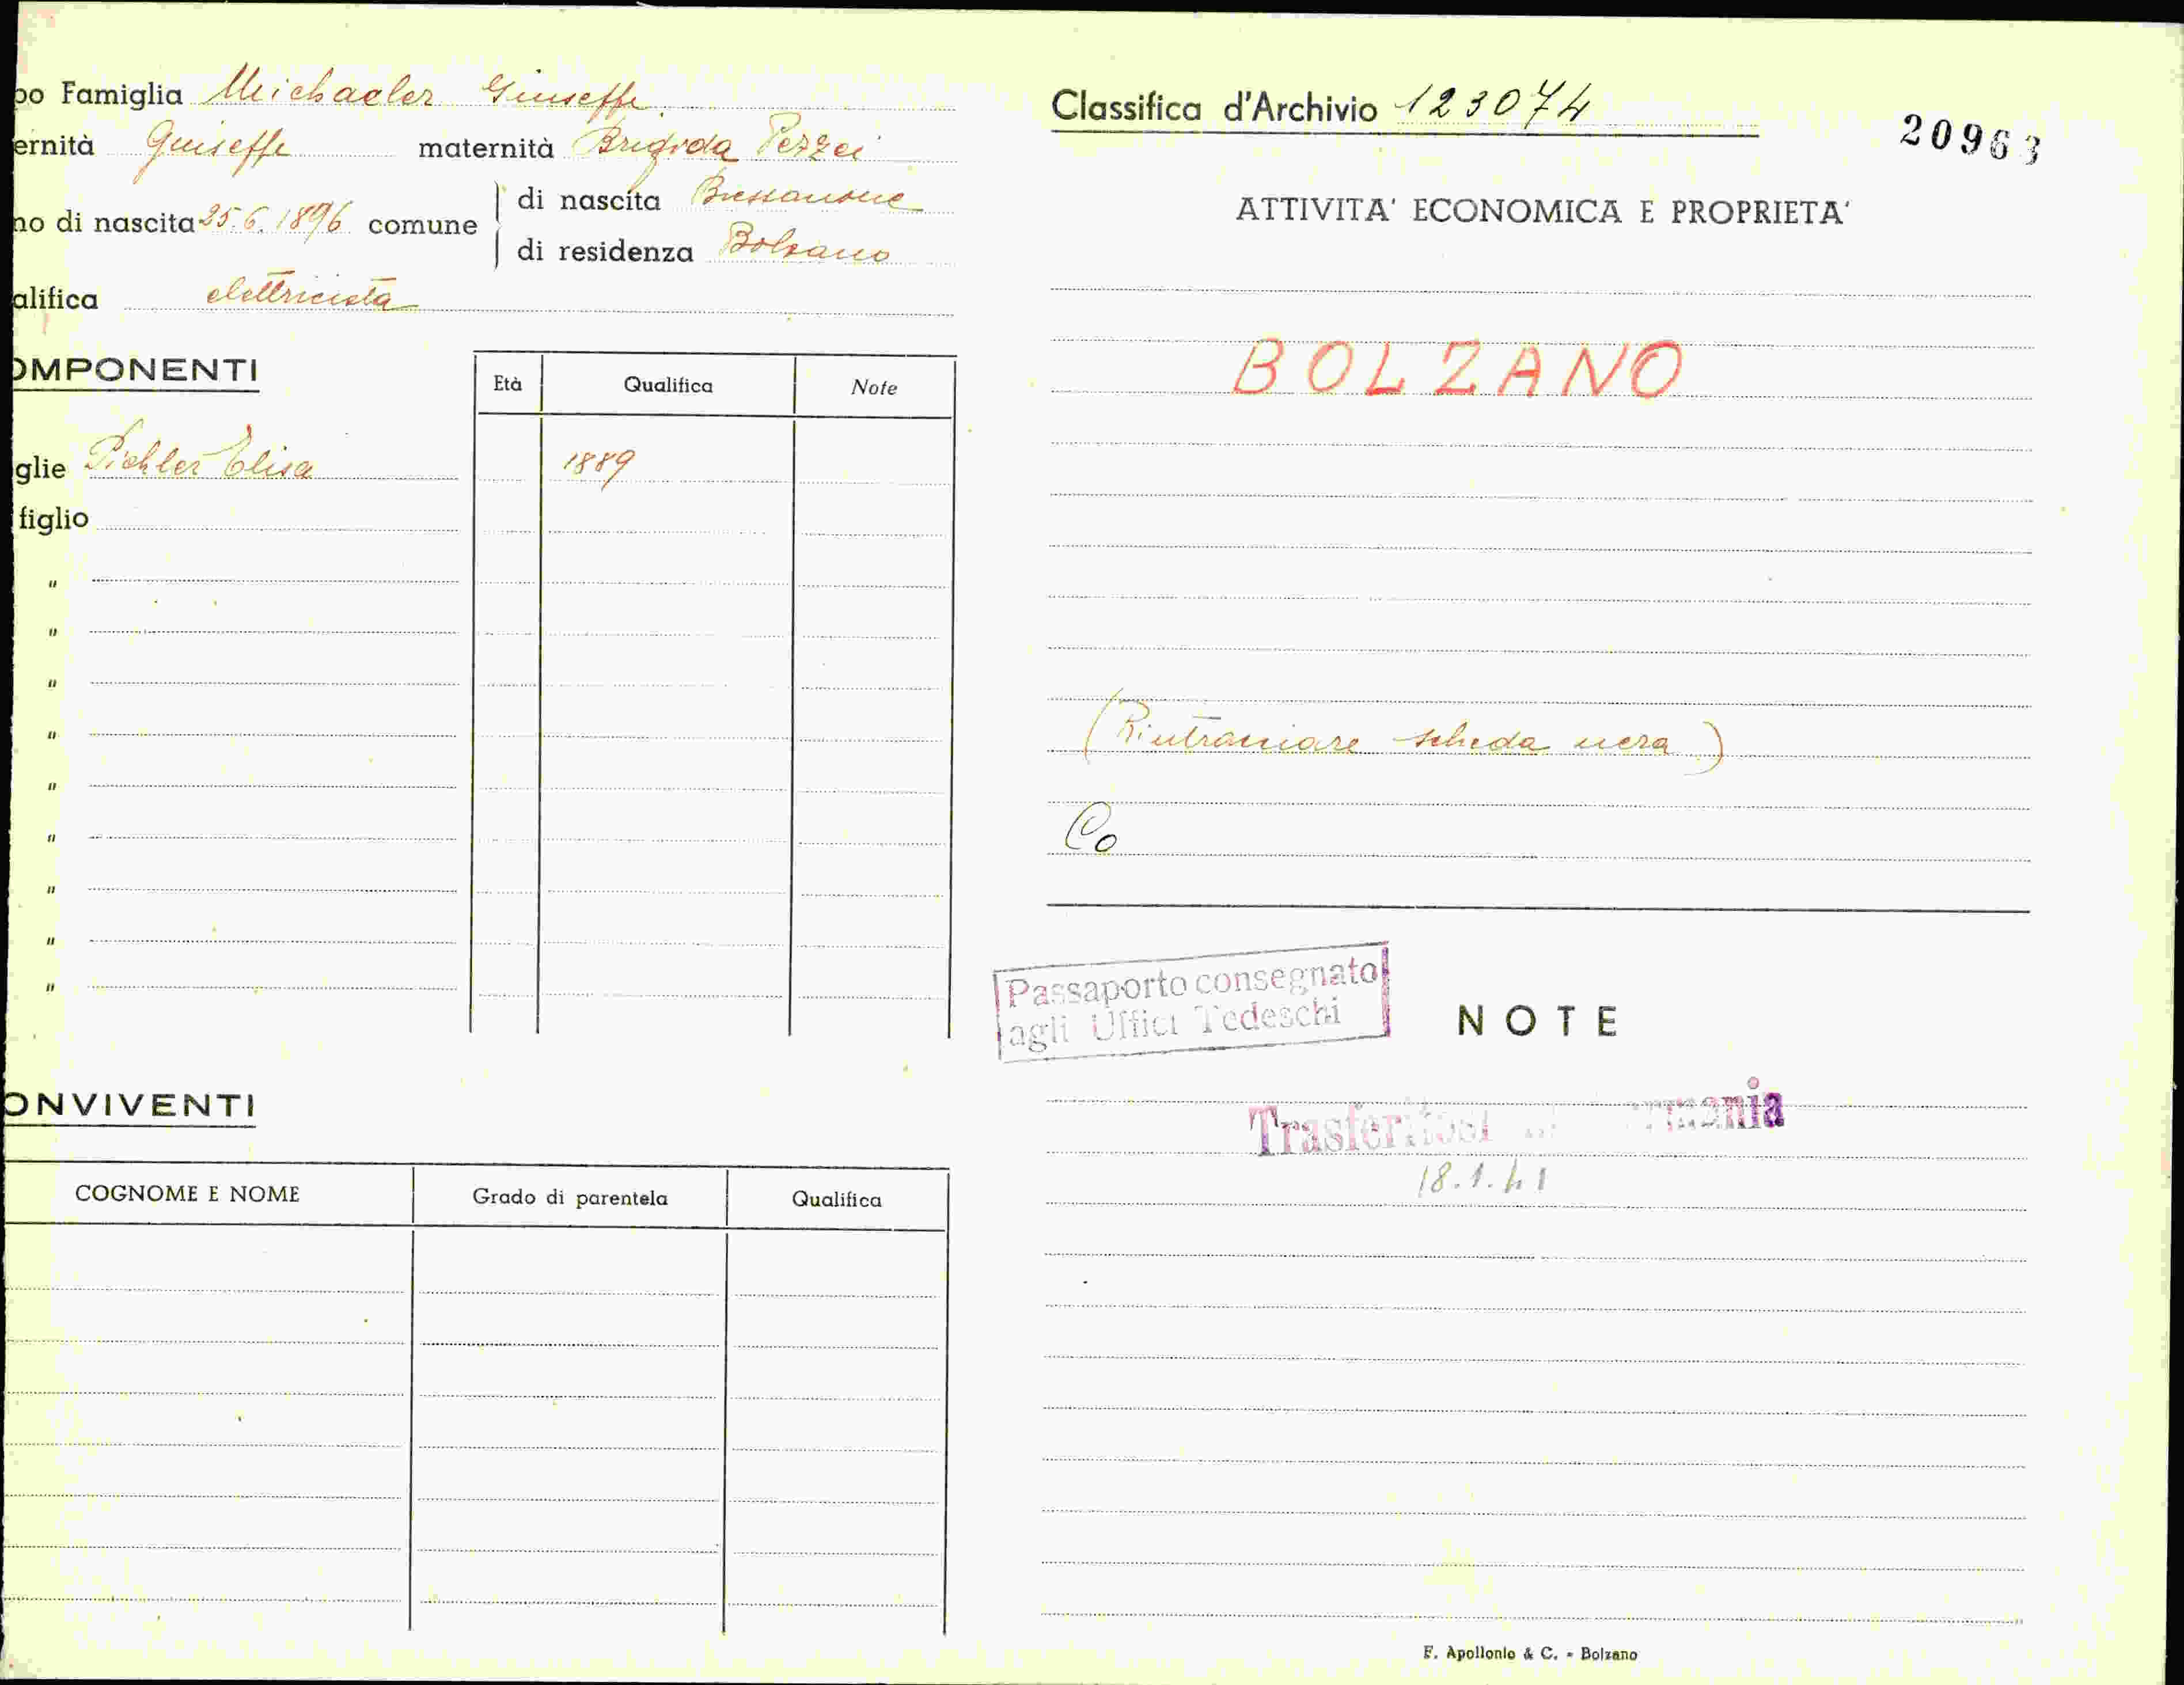 po Famiglia Michaeler Giuseffe
ernità Guiseffe maternità Brigida Pezzei
no di nascita 25.6.1896 comune
di nascita Bressanone
di residenza Bolzano
alifica elettricista
OMPONENTI
Età Qualifica Note
glie Pichler Elisa 1889
figlio
"
"
"
"
"
"
"
"
"
ONVIVENTI
COGNOME E NOME Grado di parentela Qualifica
Classifica d'Archivio 123074
20963
ATTIVITA' ECONOMICA E PROPRIETA'
BOLZANO
(Rintracciare scheda nera)
Co
Passaporto consegnato
agli Uffici Tedeschi
NOTE
Trasferitosi rmania
18.1.41
F. Apollonio & C. - Bolzano